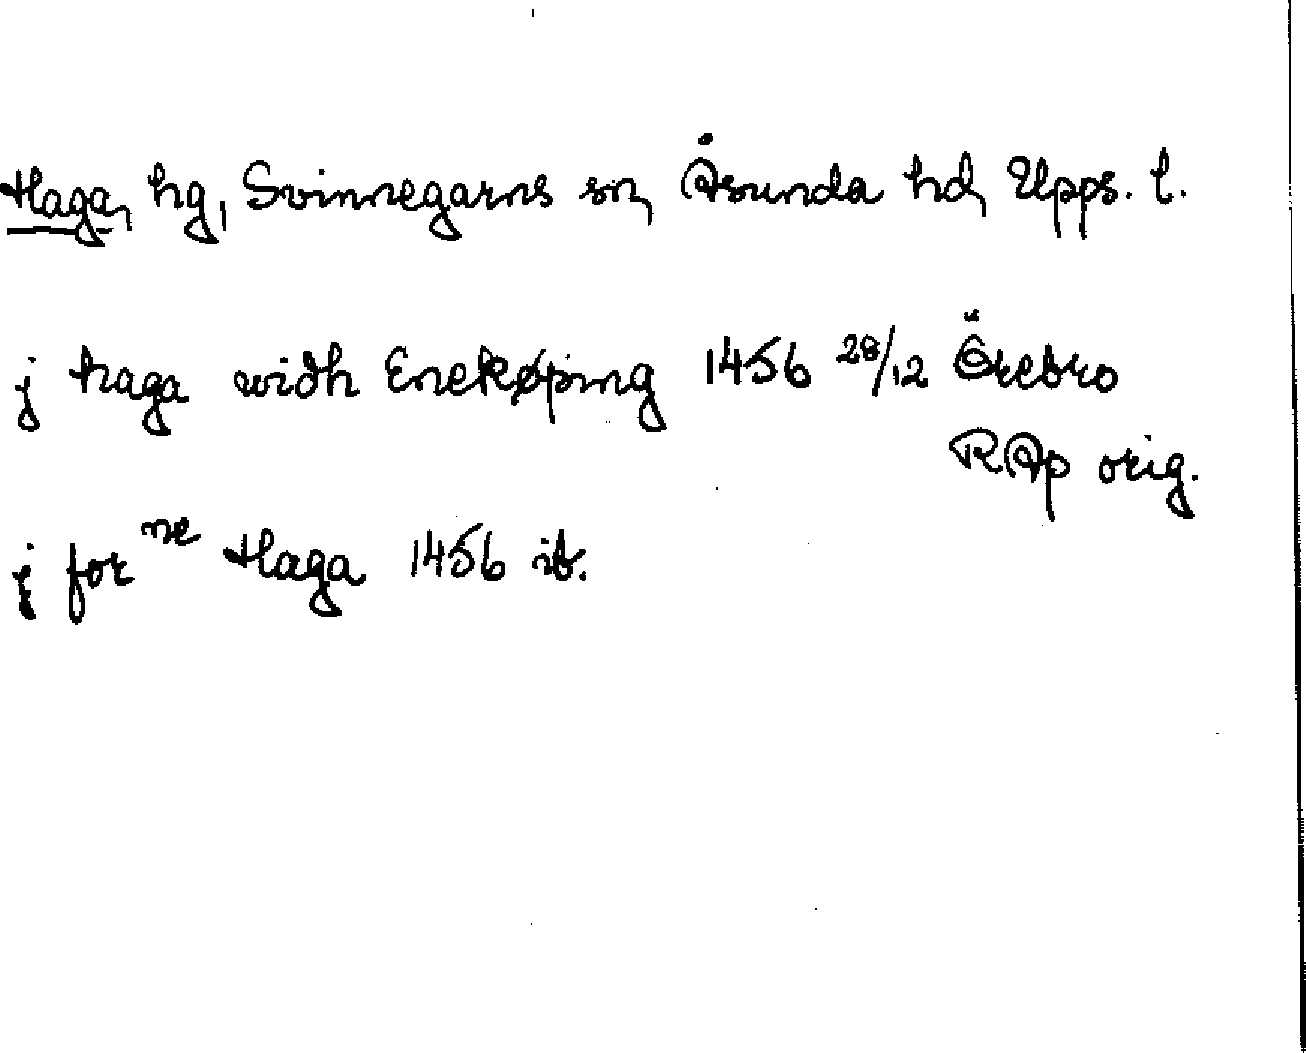 Haga, hg, Svinnegarns sn, Åsunda hd, Upps. l.
j haga widh Enekøping 1456 28/12 Örebro
RAp orig.
j for ne Haga 1456 ib.